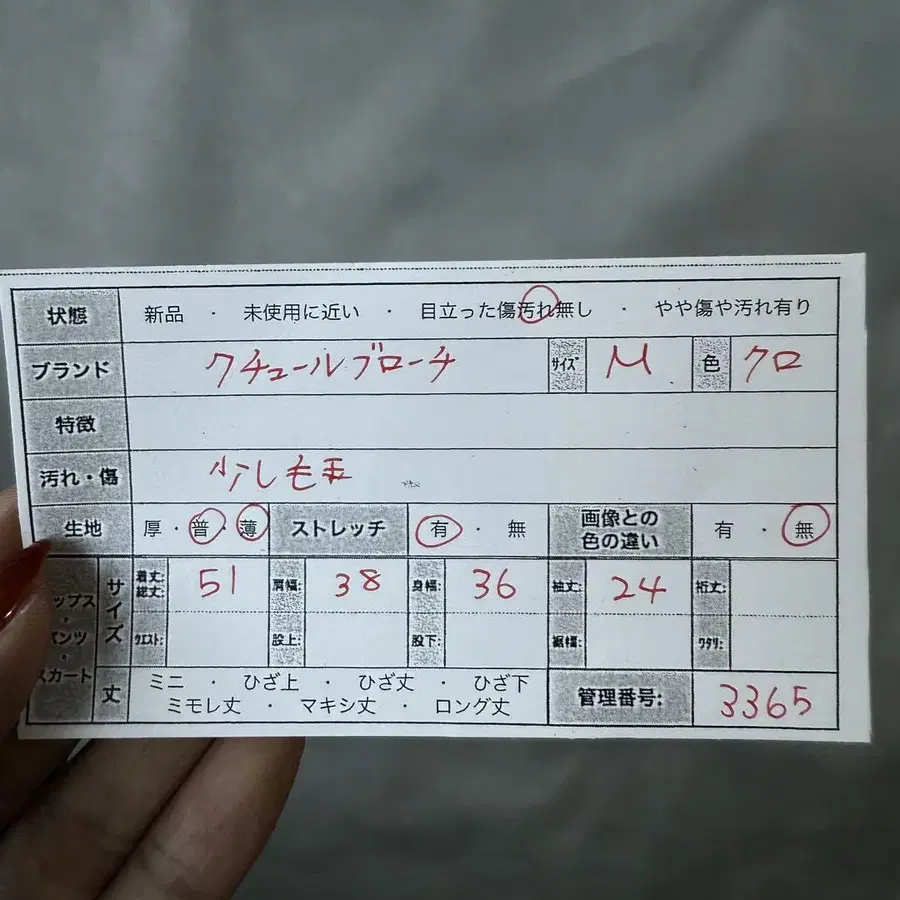 状態 新品 ・ 未使用に近い ・ 目立った傷汚れ無し ・ やや傷や汚れ有り
ブランド クチュールブローチ サイズ M 色 クロ
特徴
汚れ・傷 少し毛玉
生地 厚・普・薄 ストレッチ 有 ・ 無 画像との色の違い 有 ・ 無
サイズ 着丈: 総丈: 51 肩幅: 38 身幅: 36 袖丈: 24 裄丈:
ップス・パンツ・スカート ウエスト: 股上: 股下: 裾幅: ワタリ:
丈 ミニ ・ ひざ上 ・ ひざ丈 ・ ひざ下
ミモレ丈 ・ マキシ丈 ・ ロング丈 管理番号: 3365